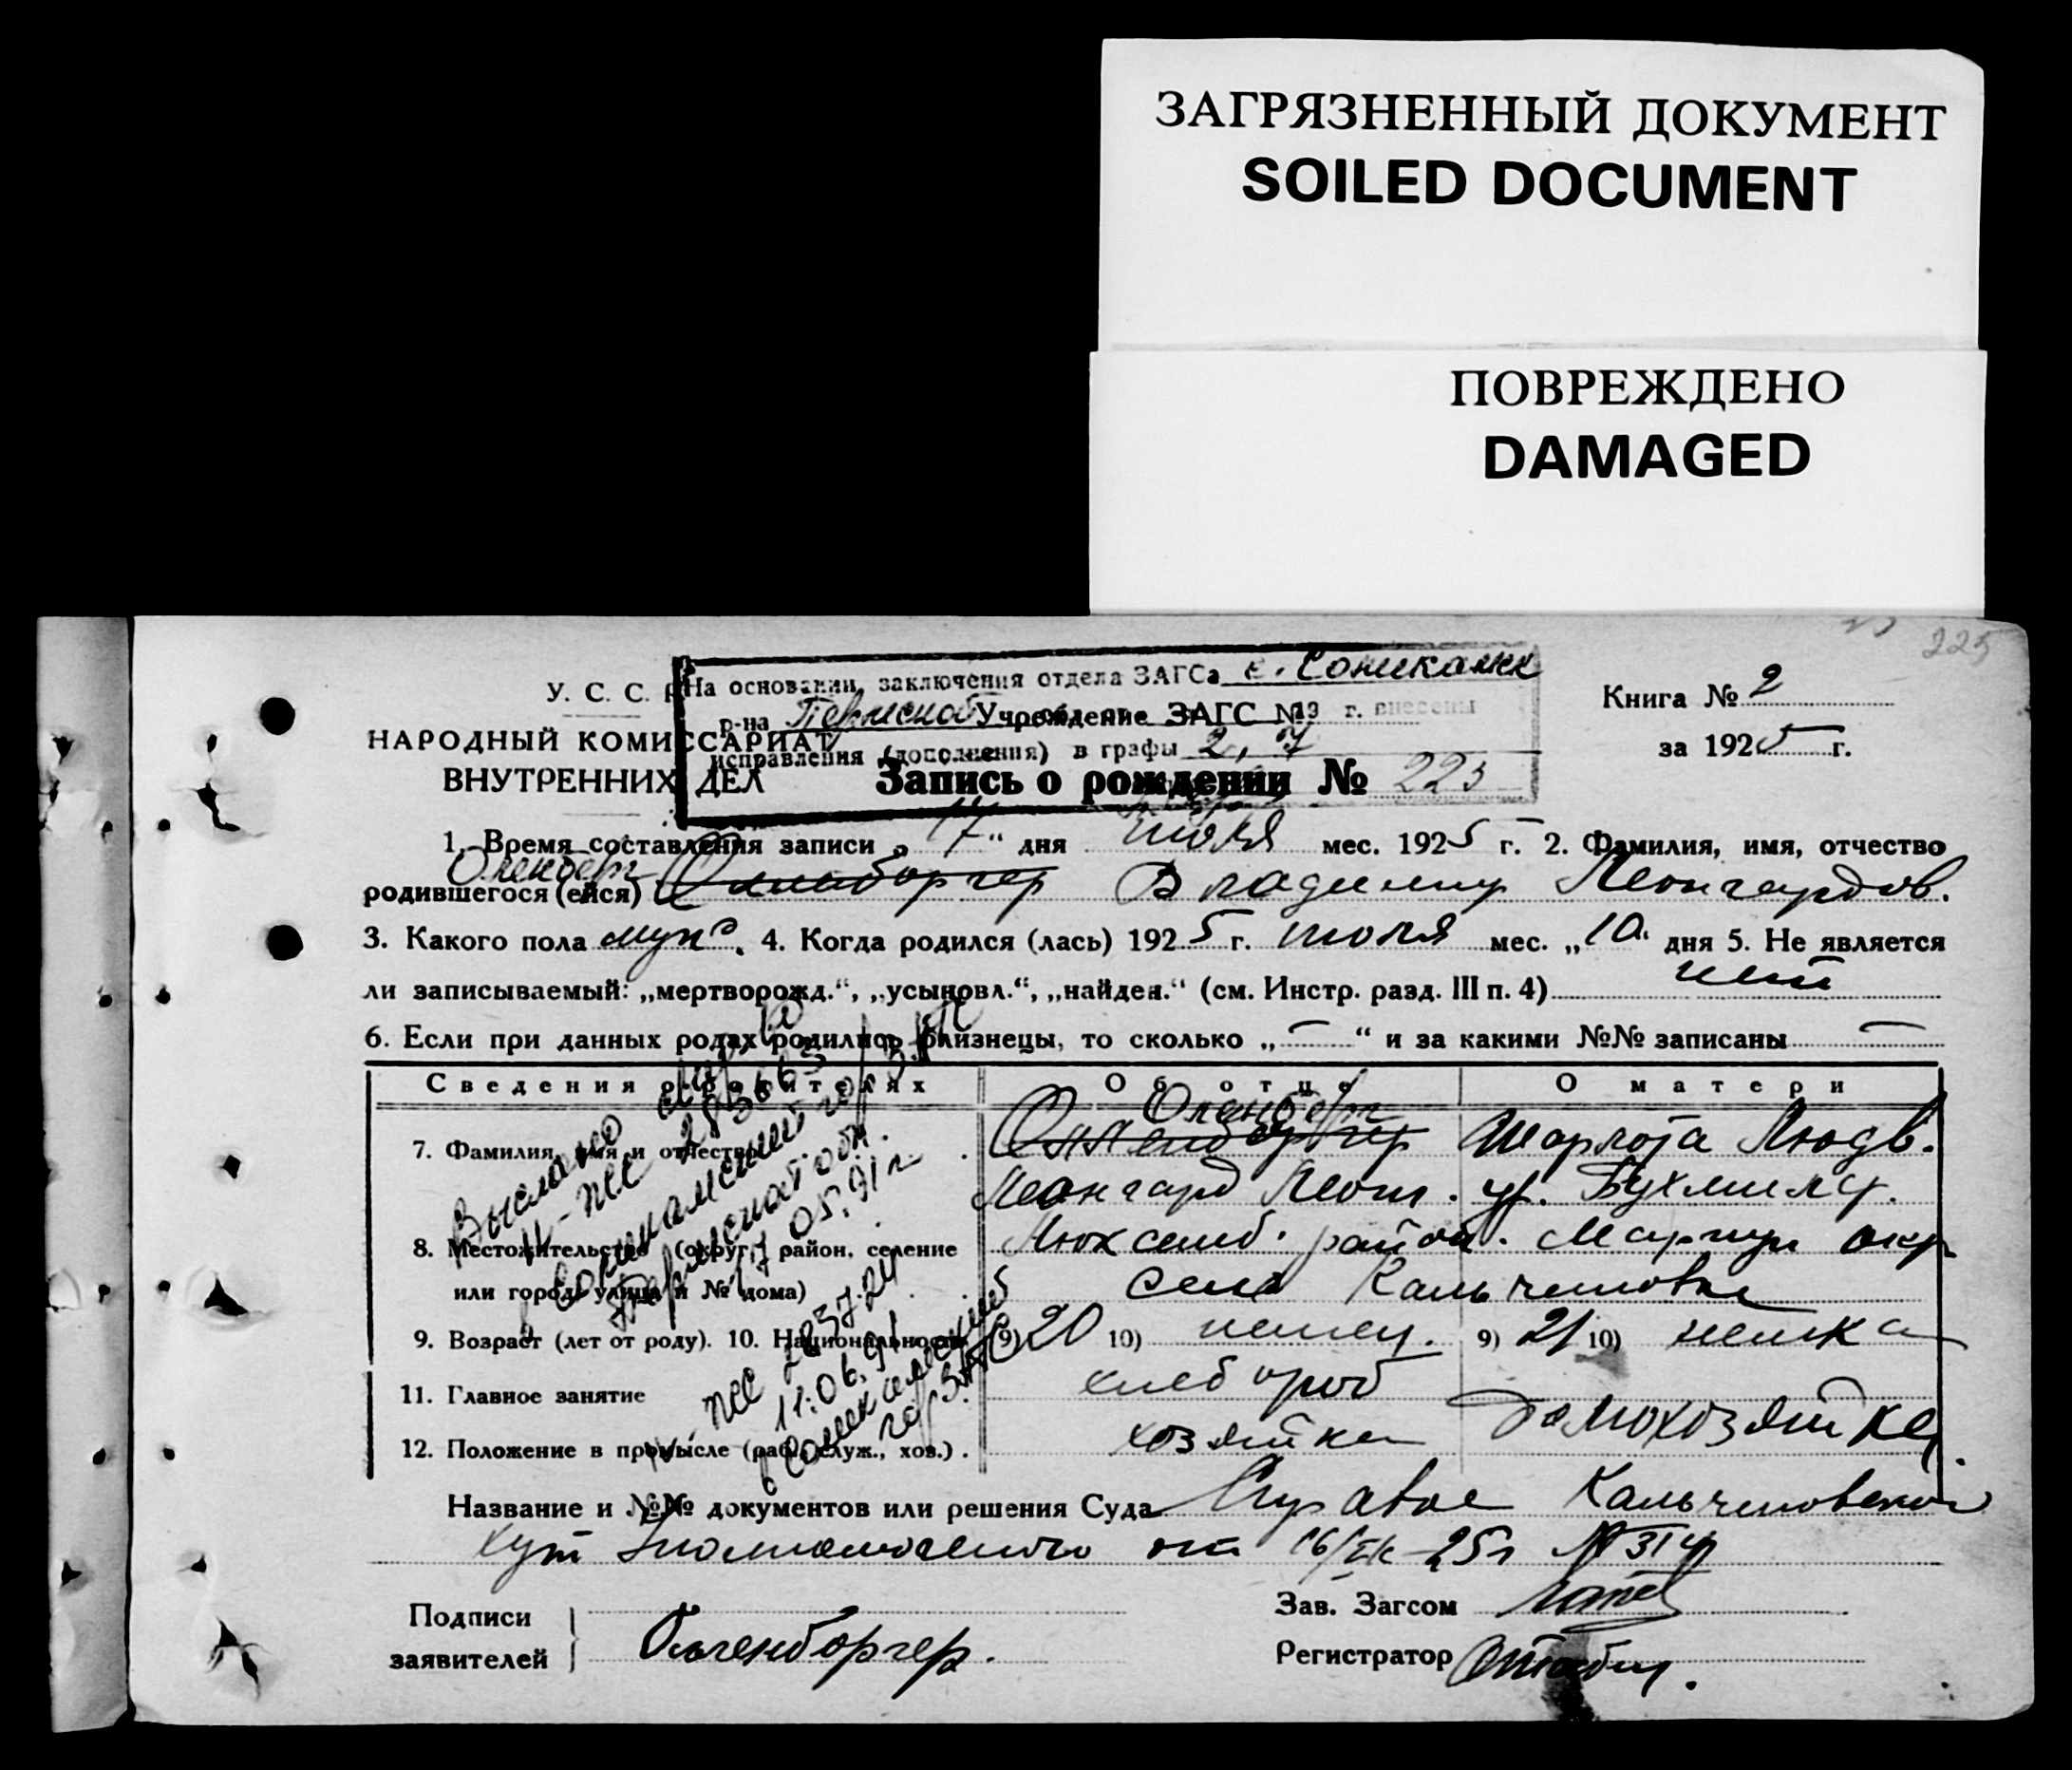 ЗАГРЯЗНЕННЫЙ ДОКУМЕНТ
SOILED DOCUMENT
ПОВРЕЖДЕНО
DAMAGED
225
У. С. С. Р.
НАРОДНЫЙ КОМИССАРИАТ
ВНУТРЕННИХ ДЕЛ
На основании заключения отдела ЗАГСа г. Соликамск
р-на Пермской 19 г. внесены
исправления (дополнения) в графы 2, 7
Учреждение ЗАГС №
Запись о рождении № 225
Книга № 2
за 1925 г.
1. Время составления записи „17“ дня июля мес. 1925 г. 2. Фамилия, имя, отчество
Оленберг
родившегося (ейся) Владимир Леонгардов.
3. Какого пола муж. 4. Когда родился (лась) 1925 г. июля мес. „10“ дня 5. Не является
ли записываемый: „мертворожд.“, „усыновл.“, „найден.“ (см. Инстр. разд. III п. 4) нет
6. Если при данных родах родились близнецы, то сколько „—“ и за какими №№ записаны —
Сведения о родителях Об отце О матери
Оленберг
7. Фамилия, имя и отчество Шарлота Людв.
Леонгард Леон. ур.
8. Местожительство (округ, район, селение Люксемб. район. Мариуп окр
или город, улица и № дома) село Кальчиновка
9. Возраст (лет от роду). 10. Национальность 9) 20 10) немец. 9) 21 10) немка
11. Главное занятие хлебороб
12. Положение в промысле (раб., служ., хоз.) хозяйка домохозяйка
Выслано
II-ПЕ № 285663
в Соликамский гор ЗАГС
Пермской обл.
17.05.91 г.
11.06.91
в Соликамский
гор ЗАГС
Название и №№ документов или решения Суда Справка Кальчиновского
хут уполномоченного от 25г №
Подписи
заявителей Ольгенборгер.
Зав. Загсом
Регистратор